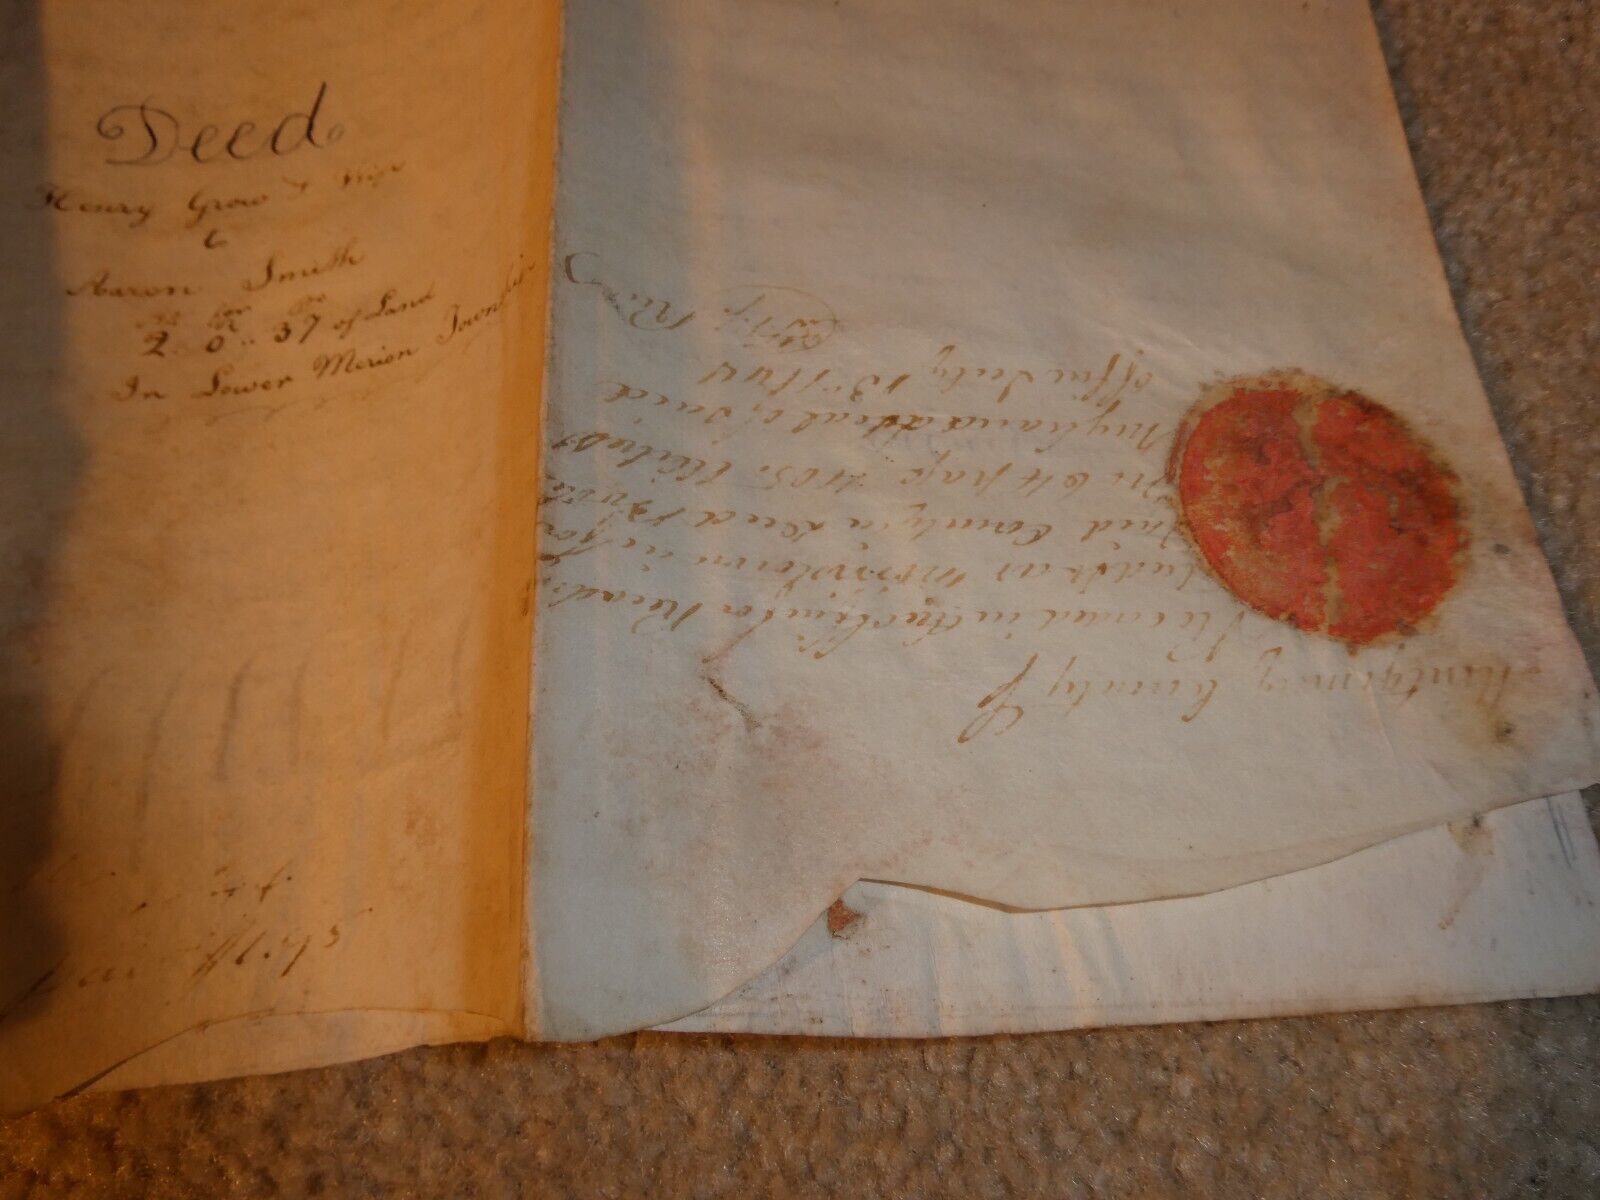 Deed
Henry Grow & Wife
to
Aaron Smith
2. 0.. 37 of Land
In Lower Merion Township
Montgomery County ss
Recorded in the office for Recording
Deeds at Norristown in & for
said County in Deed Book
No 64 page 405. Witness
My hand & Seal of said
office July 13th 1844